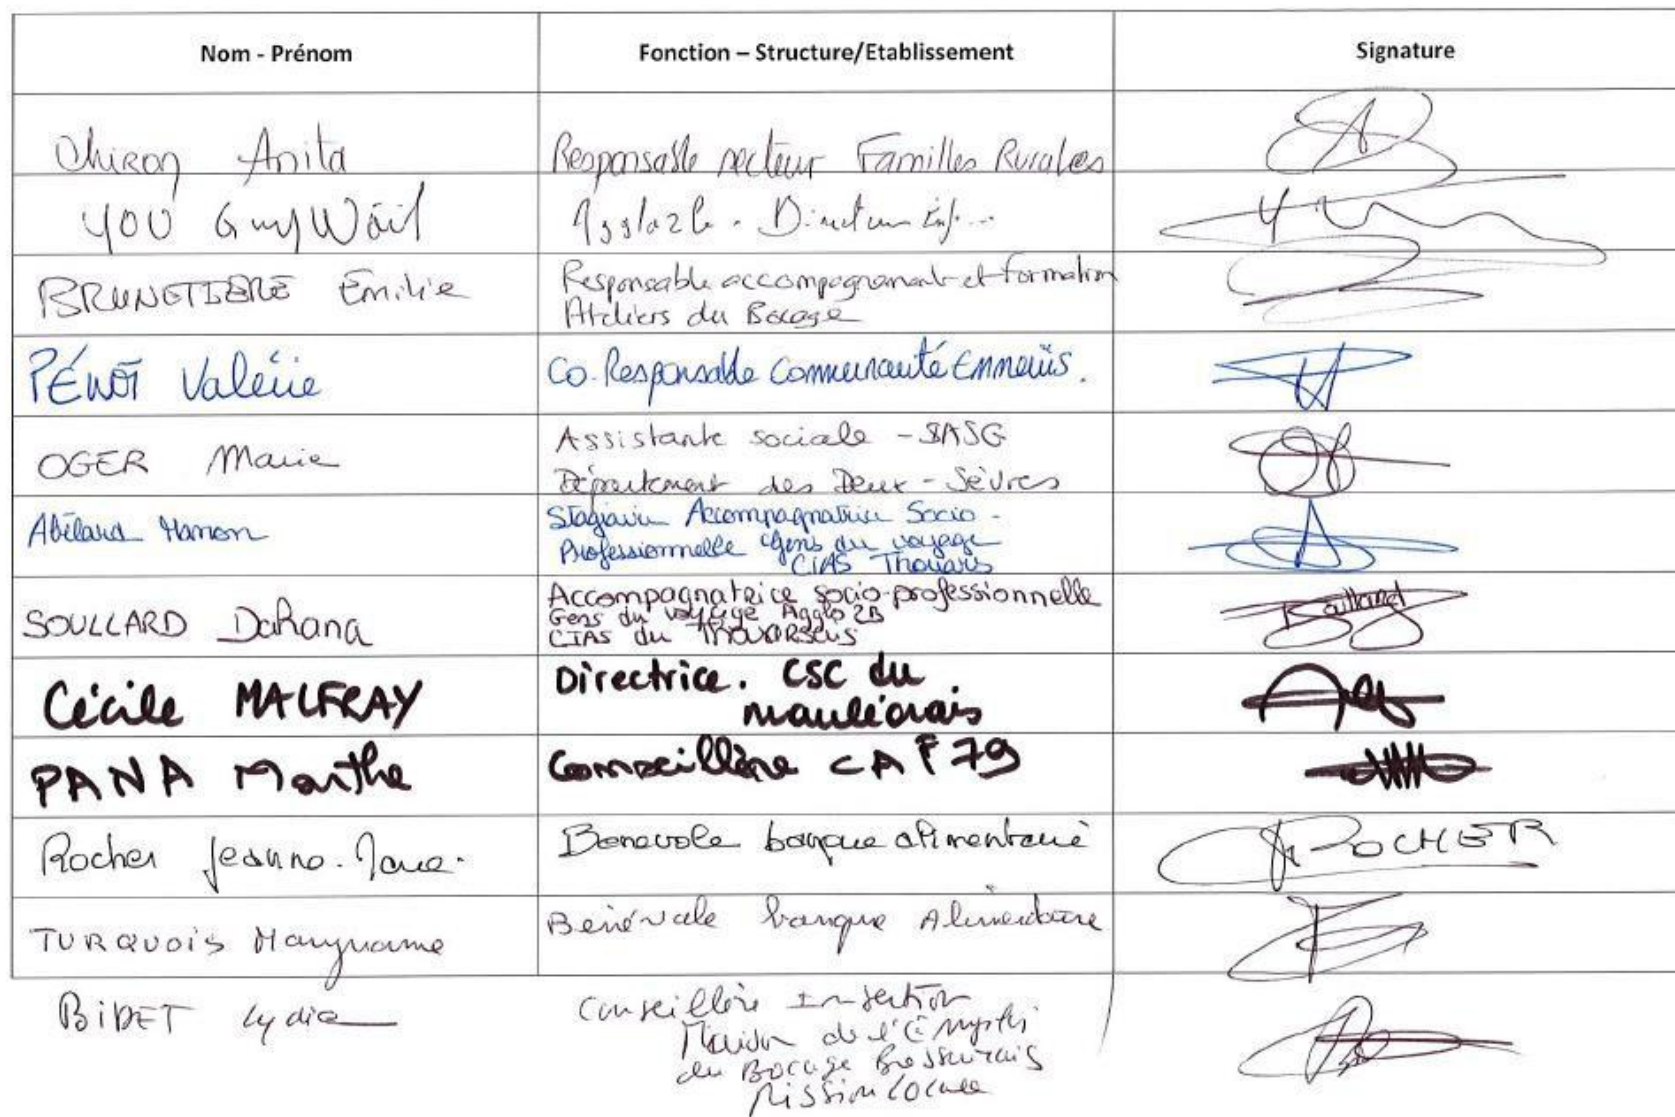 Nom - Prénom
Fonction – Structure/Etablissement
Signature
Chiron Anita
Responsable secteur Familles Rurales
YOU Guy Waïl
Agglo2b - Directeur
BRUNETIERE Emilie
Responsable accompagnement et formation
Ateliers du Bocage
PÉNOT Valérie
Co-Responsable Communauté Emmaüs.
OGER Marie
Assistante sociale - SASG
Département des Deux-Sèvres
Abélard Manon
Stagiaire Accompagnatrice Socio-
Professionnelle Gens du voyage
CIAS Thouars
SOULLARD Dahana
Accompagnatrice socio-professionnelle
Gens du voyage Agglo 2B
CIAS du Thouarsais
Soullard
Cécile MALFRAY
Directrice. CSC du
mauléonais
PANA Marthe
Conseillère CAF 79
Rocher Jeanne-Marie.
Benevole banque alimentaire
ROCHER
TURQUOIS Maryvonne
Bénévole banque Alimentaire
BiDET Lydia
Conseillère Insertion
Maison de l'Emploi
du Bocage Bressuirais
Mission Locale